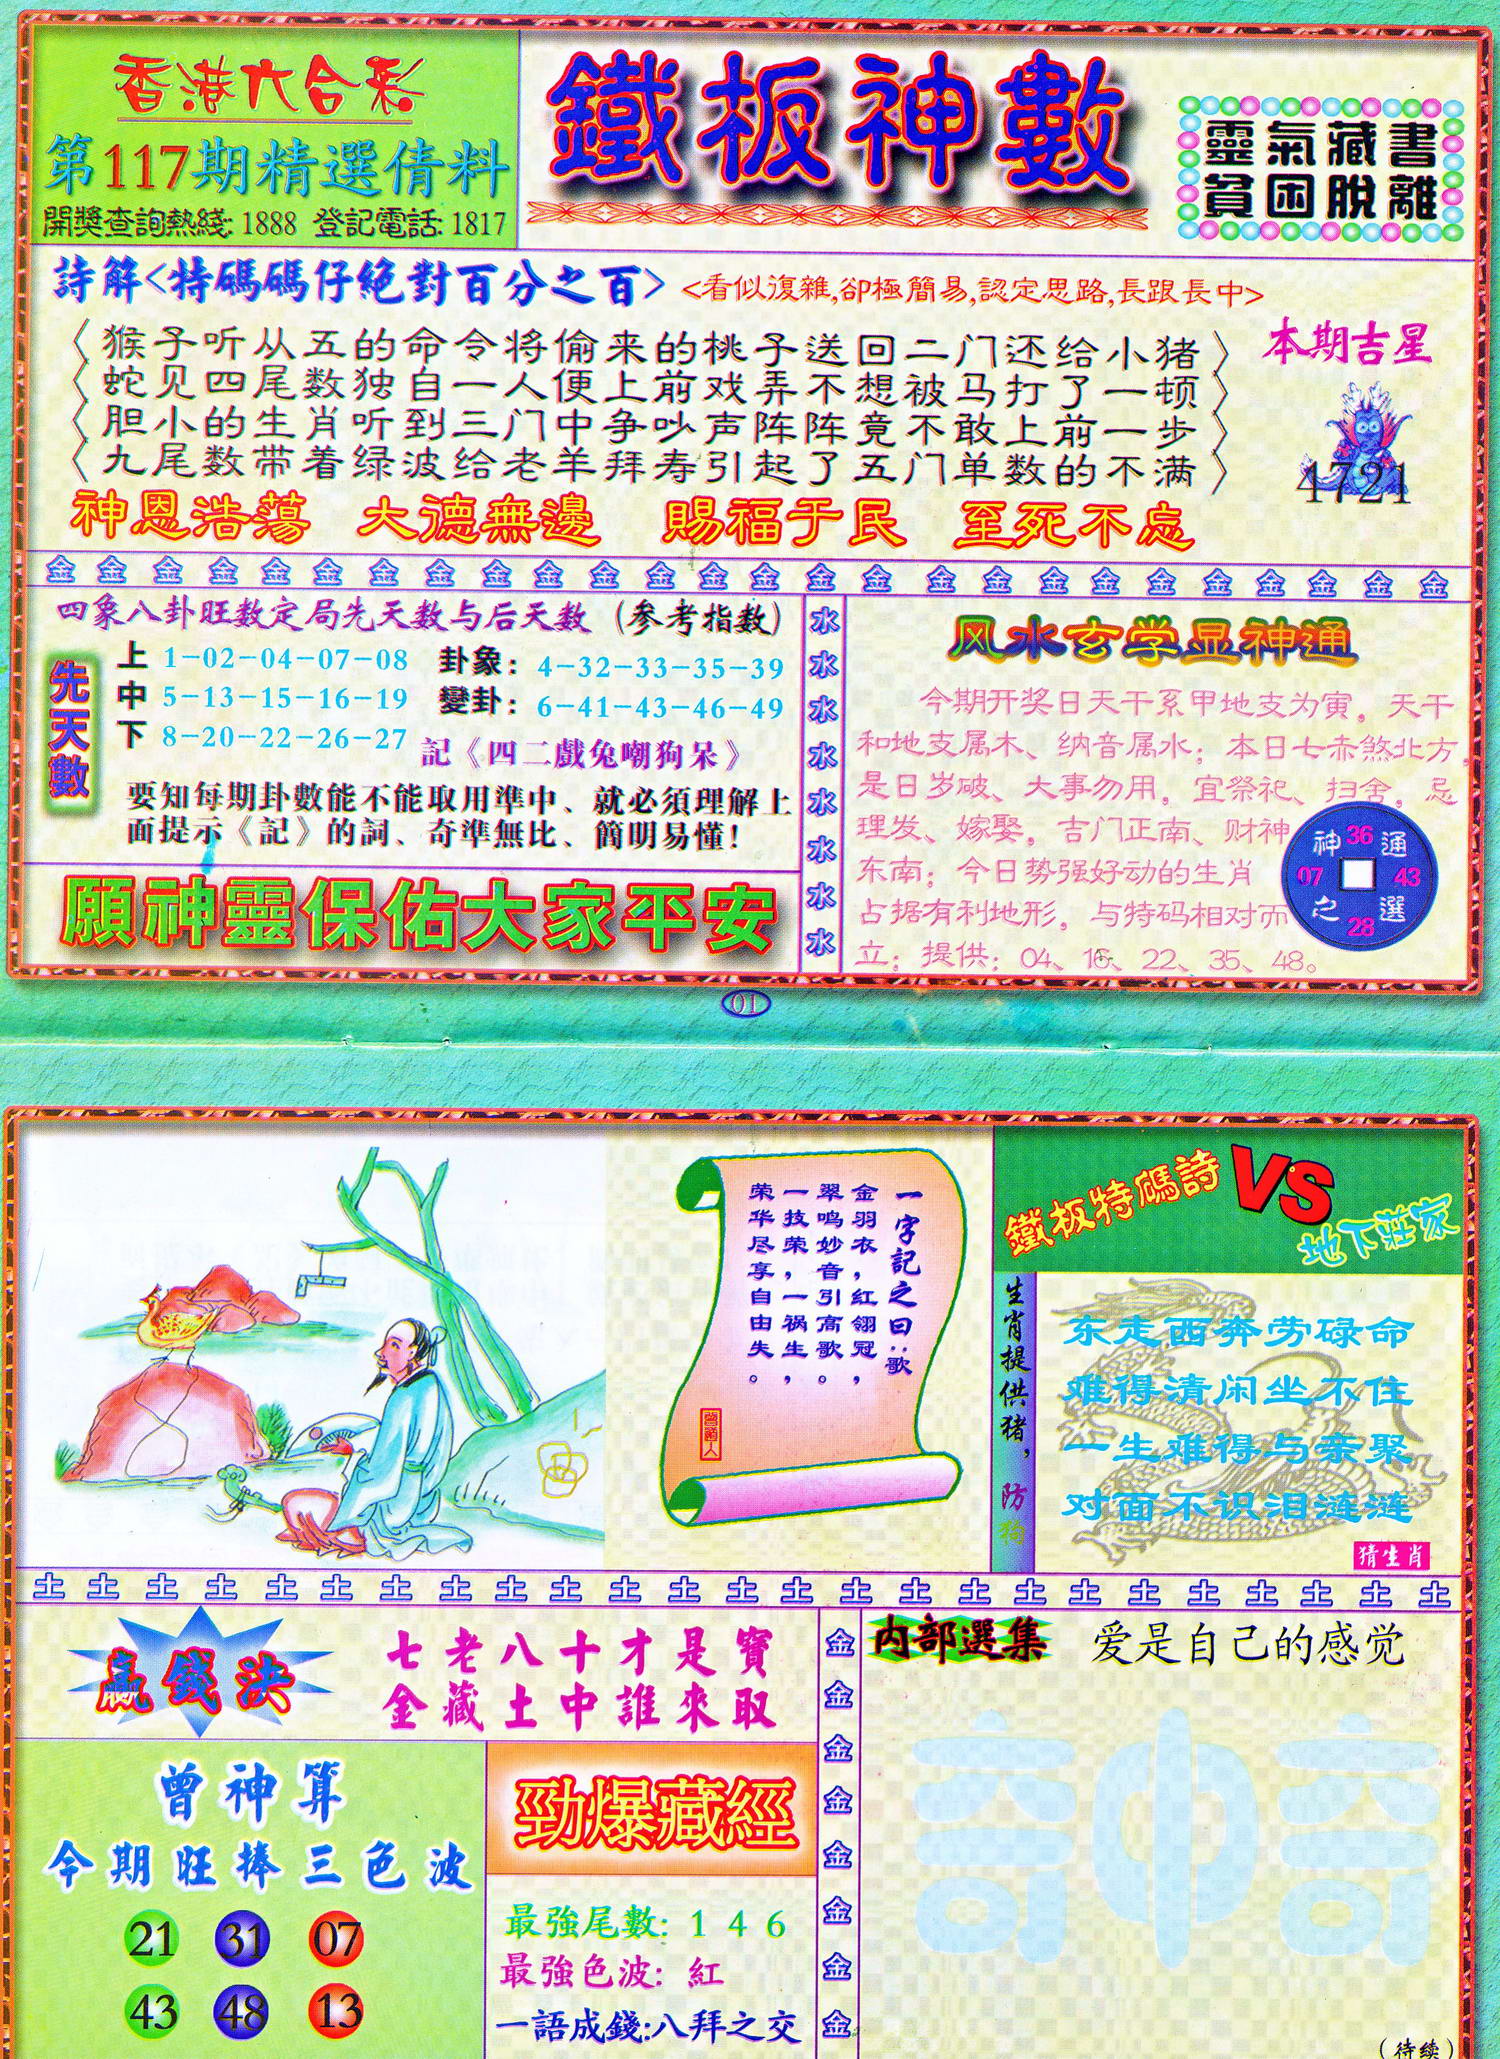 香港六合彩
第117期精選倩料
開獎查詢熱綫: 1888 登記電話: 1817
鐵板神數
靈氣藏書
貧困脫離
詩解<特碼碼仔絕對百分之百>
<看似復雜,卻極簡易,認定思路,長跟長中>
〈猴子听从五的命令将偷来的桃子送回二门还给小猪〉
〈蛇见四尾数独自一人便上前戏弄不想被马打了一顿〉
〈胆小的生肖听到三门中争吵声阵阵竟不敢上前一步〉
〈九尾数带着绿波给老羊拜寿引起了五门单数的不满〉
本期吉星
4721
神恩浩蕩 大德無邊 賜福于民 至死不忘
金 金 金 金 金 金 金 金 金 金 金 金 金 金 金 金 金 金 金 金 金 金 金 金 金 金
四象八卦旺数定局先天数与后天数（参考指数）
先天數
上 1-02-04-07-08
中 5-13-15-16-19
下 8-20-22-26-27
卦象: 4-32-33-35-39
變卦: 6-41-43-46-49
記《四二戲兔嘲狗呆》
要知每期卦數能不能取用準中、就必須理解上
面提示《記》的詞、奇準無比、簡明易懂！
願神靈保佑大家平安
水
水
水
水
水
水
水
水
风水玄学显神通
今期开奖日天干系甲地支为寅，天干
和地支属木、纳音属水；本日七赤煞北方，
是日岁破、大事勿用，宜祭祀、扫舍，忌
理发、嫁娶，吉门正南、财神
东南；今日势强好动的生肖
占据有利地形，与特码相对而
立；提供：04、16、22、35、48。
神 36 通
07 43
之 28 選
01
一字記之曰：歌
金羽衣，红翎冠，
翠鸣妙音引高歌。
一技荣，一祸生，
荣华尽享自由失。
鐵板特碼詩
VS
地下莊家
生肖提供猪，防狗
东走西奔劳碌命
难得清闲坐不住
一生难得与亲聚
对面不识泪涟涟
猜生肖
土 土 土 土 土 土 土 土 土 土 土 土 土 土 土 土 土 土 土 土 土 土 土 土 土
贏錢決
七老八十才是寶
金藏土中誰來取
曾神算
今期旺捧三色波
21 31 07
43 48 13
勁爆藏經
最強尾數: 1 4 6
最強色波: 紅
一語成錢:八拜之交
金
金
金
金
金
金
金
金
内部選集
爱是自己的感觉
（待续）